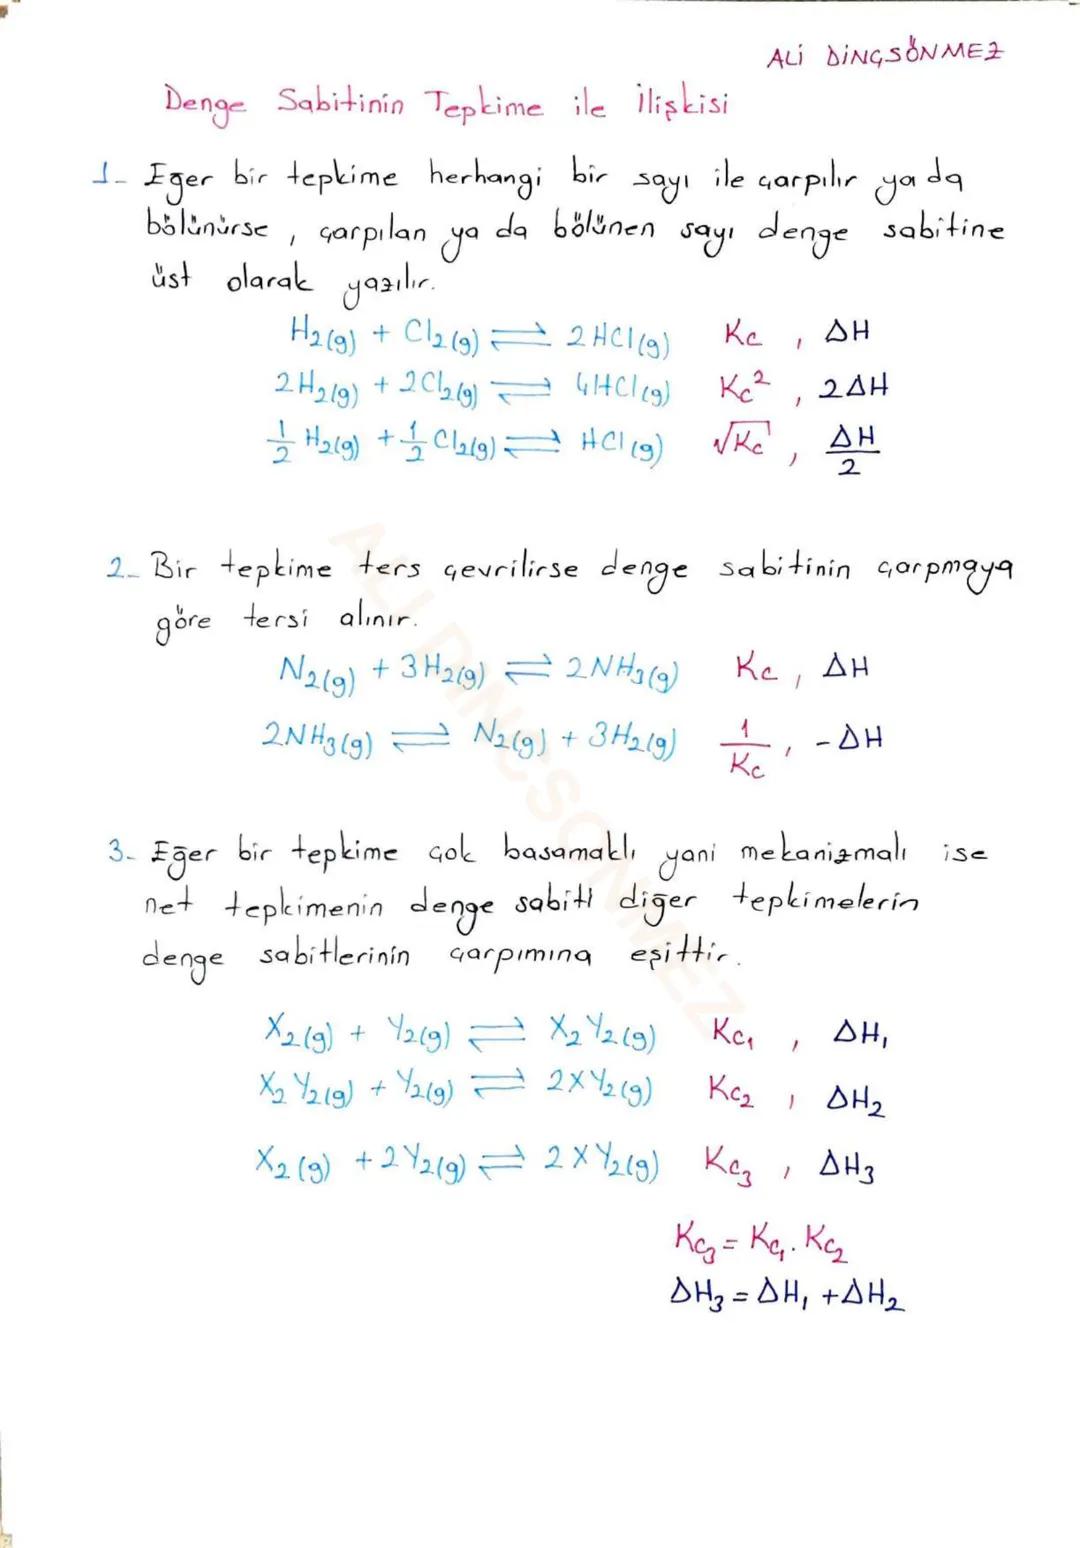 ALİ DİNÇSÖNMEZ
Denge Sabitinin Tepkime ile İlişkisi
1- Eğer bir tepkime herhangi bir sayı ile çarpılır ya da
bölünürse, çarpılan ya da bölünen sayı denge sabitine
üst olarak yazılır.
H₂(g) + Cl₂(g) ⇌ 2HCl(g) Kc , ΔH
2H₂(g) + 2Cl₂(g) ⇌ 4HCl(g) Kc² , 2ΔH
1/2 H₂(g) + 1/2 Cl₂(g) ⇌ HCl(g) √Kc , ΔH/2
2- Bir tepkime ters çevrilirse denge sabitinin çarpmaya
göre tersi alınır.
N₂(g) + 3H₂(g) ⇌ 2NH₃(g) Kc , ΔH
2NH₃(g) ⇌ N₂(g) + 3H₂(g) 1/Kc , -ΔH
3- Eğer bir tepkime çok basamaklı yani mekanizmalı ise
net tepkimenin denge sabiti diğer tepkimelerin
denge sabitlerinin çarpımına eşittir.
X₂(g) + Y₂(g) ⇌ X₂Y₂(g) Kc₁ , ΔH₁
X₂Y₂(g) + Y₂(g) ⇌ 2XY₂(g) Kc₂ , ΔH₂
X₂(g) + 2Y₂(g) ⇌ 2XY₂(g) Kc₃ , ΔH₃
Kc₃ = Kc₁ . Kc₂
ΔH₃ = ΔH₁ + ΔH₂
ALİ DİNÇSÖNMEZ